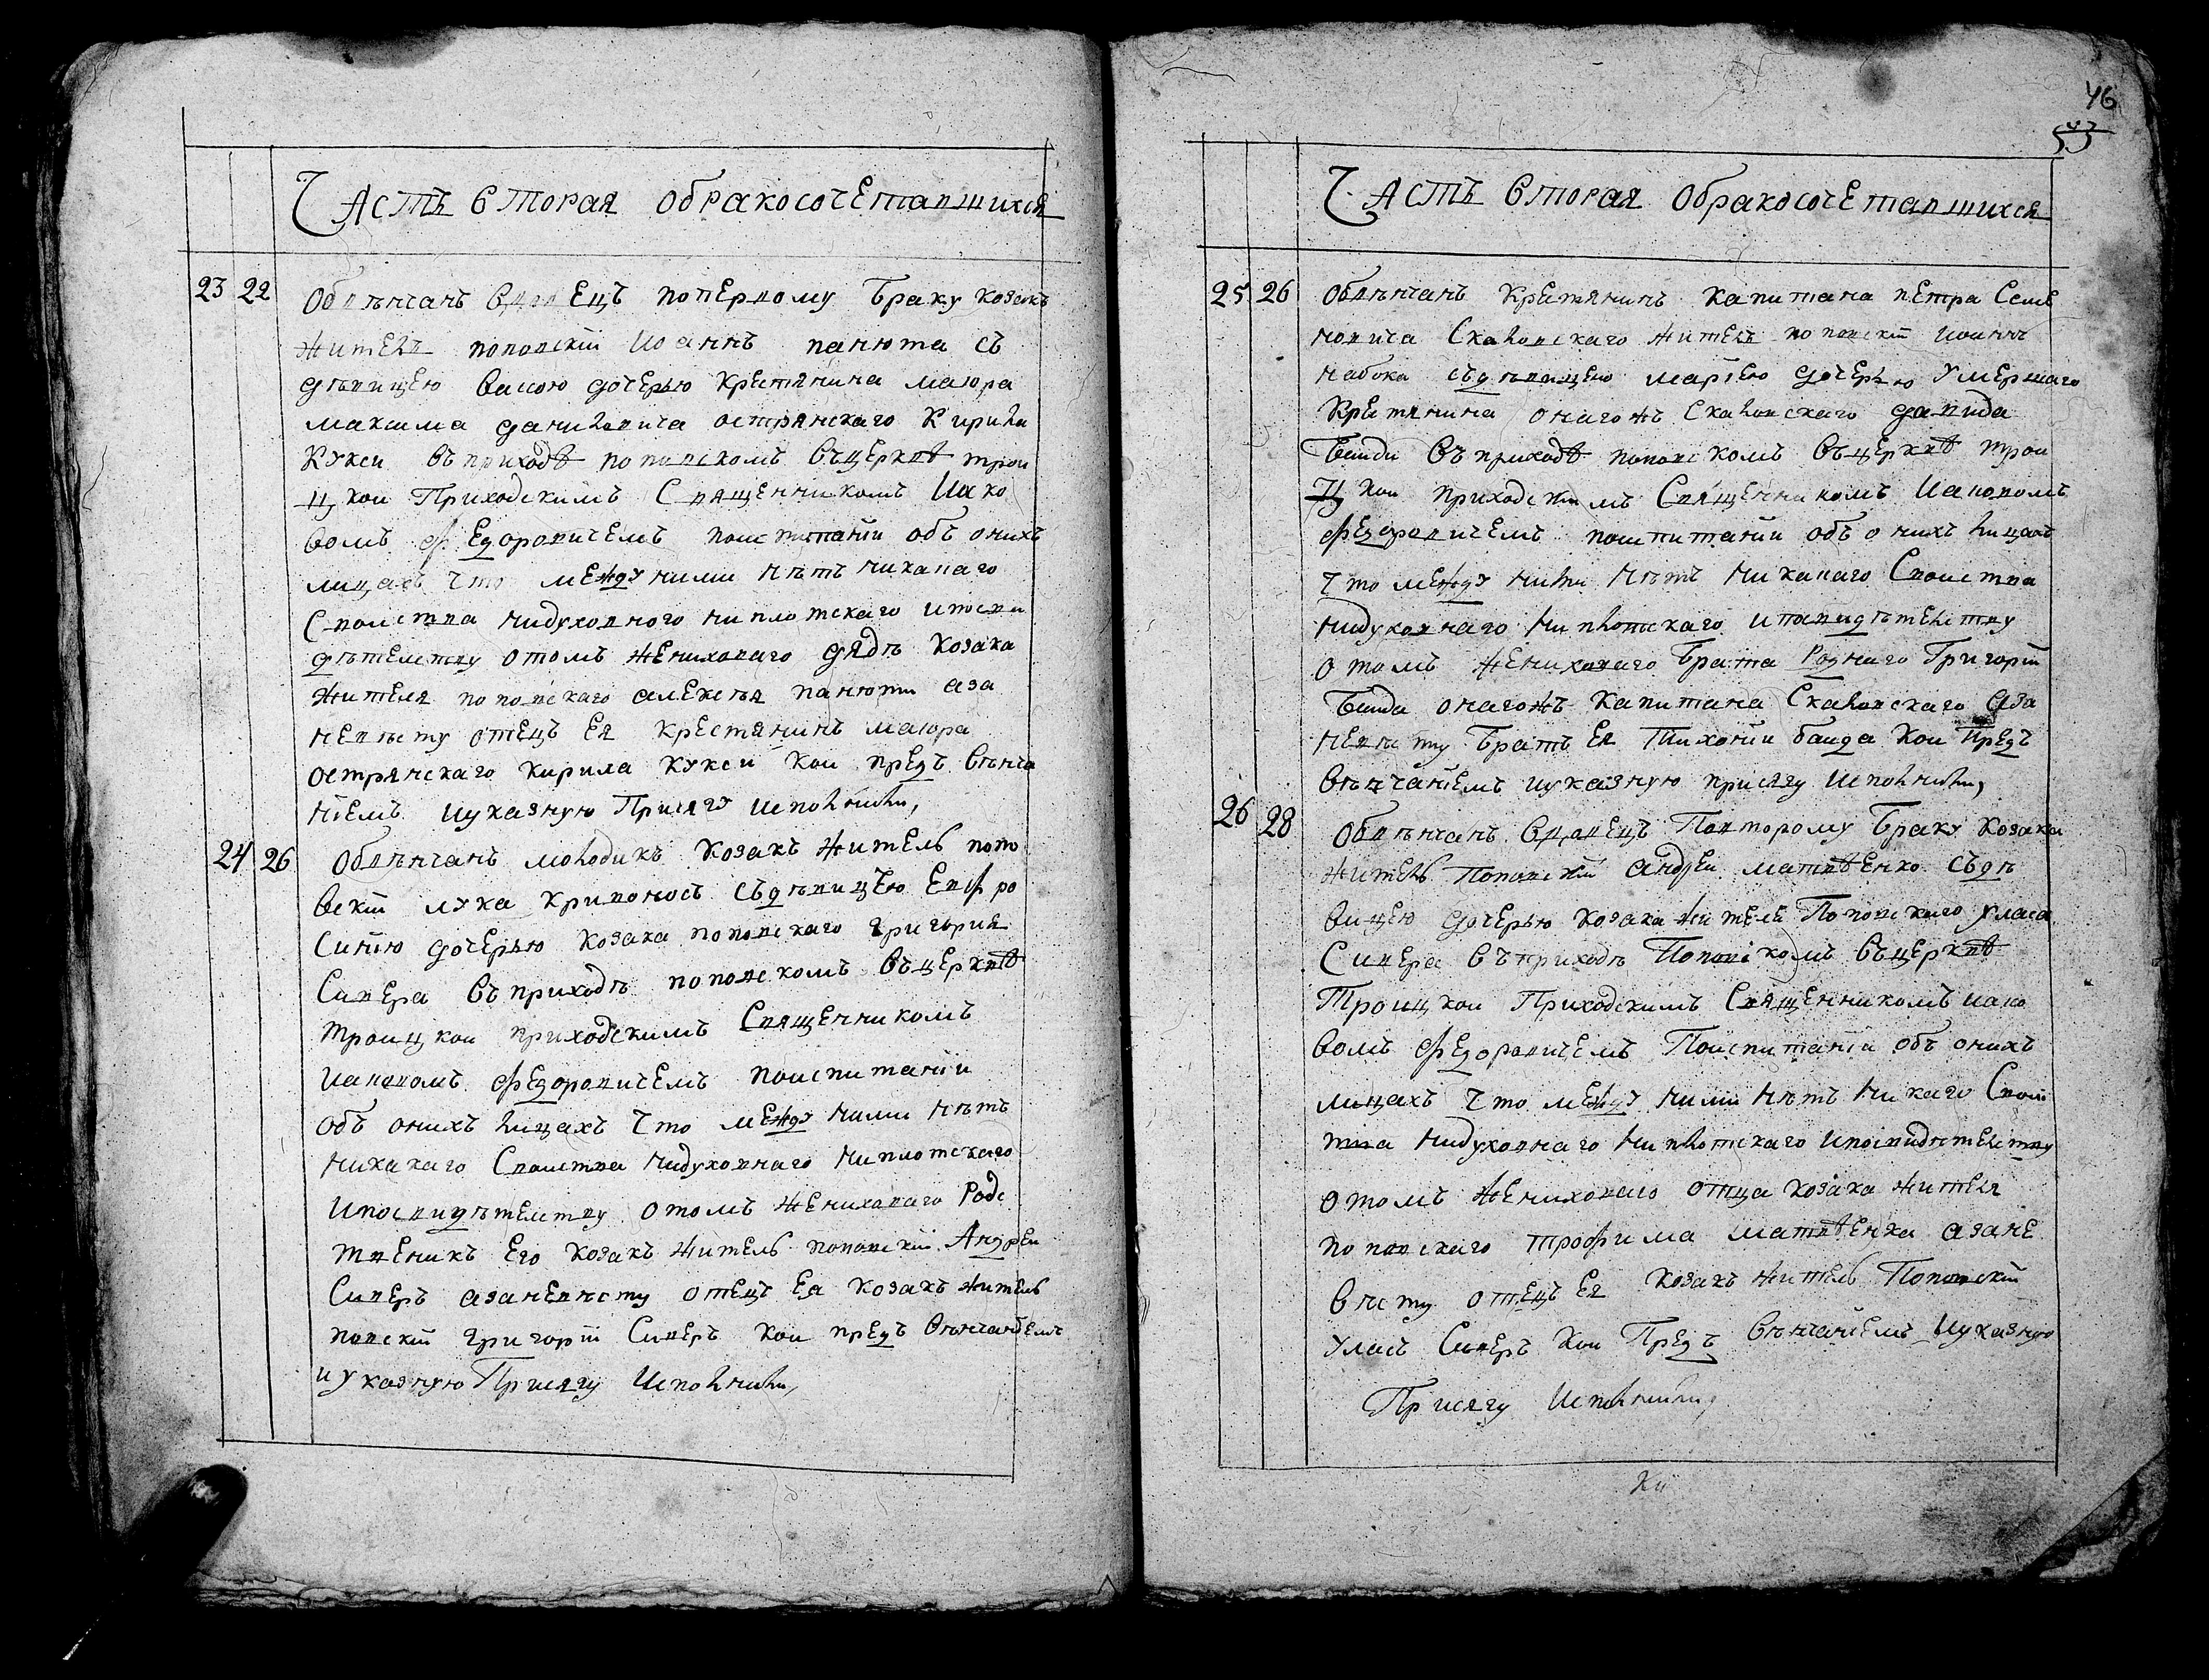 Часть вторая обракосочетавшихся
23 22 Обвѣнчанъ вдовецъ поперvому браку козакъ
житель поповскїй Иоаннъ панюта съ
дѣвицею вассою дочерью крестянина маюра
максима даниловича острянского Кирила
Кукси въ приходѣ поповскомъ въ церквѣ трои
цкой Приходскимъ Священникомъ Иако
вомъ Федоровичемъ поиспитанїи объ онихъ
лицахъ что между ними нѣтъ никакаго
Своиства нидуховного ни плотскаго ипосви
дѣтелству отомъ жениховаго дядѣ козака
жителя поповскаго алексѣя панюти аза
невѣсту отецъ Ея крестянинъ маюра
острянскаго кирила кукси кои предъ вѣнча
нїемъ иуказную Присягу исполнили,
24 26 Обвѣнчанъ молодикъ козакъ житель попо
вскїй лука кривоносъ съдѣвицею Евфро
синїю дочерью козака поповскаго григория
Сивера въ приходѣ поповскомъ въ церквѣ
троицкой приходскимъ Священникомъ
Иаковомъ федоровичемъ поиспитанїи
объ онихъ лицахъ что между ними нѣтъ
никакаго Своиства нидуховнаго ниплотскаго
ипосвидѣтелству отомъ жениховаго Родс
твеникъ Его козакъ житель поповскїй Андреи
Сиверъ азаневѣсту отецъ Ея козакъ житель
повскїй григорїй Сиверъ кои предъ вѣнчанїемъ
иуказную Присягу исполнили,
46
53
Часть вторая обракосочетавшихся
25 26 Обвѣнчанъ крестянинъ капитана петра Семе
новича Скаловскаго житель поповскїй иоаннъ
набока съдѣвицею марѳею дочерью умершаго
крестянина онагожъ Скаловскаго давида
Баиди въ приходѣ поповскомъ въ церквѣ трои
цкой приходскимъ Священникомъ Иаковомъ
федоровичемъ поиспитанїи объ онихъ лицахъ
что между ними нѣтъ никакаго Своиства
нидуховнаго ниплотскаго ипосвидѣтелству
отомъ жениховаго брата Роднаго Григорїй
Баида онагожъ капитана Скаловскаго аза
невѣсту братъ Ея Тихонїй баида кои предъ
вѣнчанїемъ иуказную присягу исполнили,
26 28 Обвѣнчанъ вдовецъ Повторому браку козакъ
житель поповскїй андреи матвѣенко съдѣ
вицею дочерью козака жителя Поповскаго уласа
Сивера въ приходѣ Поповскомъ въ церквѣ
Троицкой Приходскимъ Священникомъ иако
вомъ федоровичемъ Поиспитанїи объ онихъ
лицахъ что между ними нѣтъ никаго Свои
тва нидуховнаго ниплотскаго ипосвидѣтелству
отомъ жениховаго отца козака жителя
поповскаго трофима матвѣенка азане
вѣсту отецъ Ея козакъ житель Поповскїй
уласъ Сиверъ кои Предъ вѣнчанїемъ иуказную
Присягу исполнили,